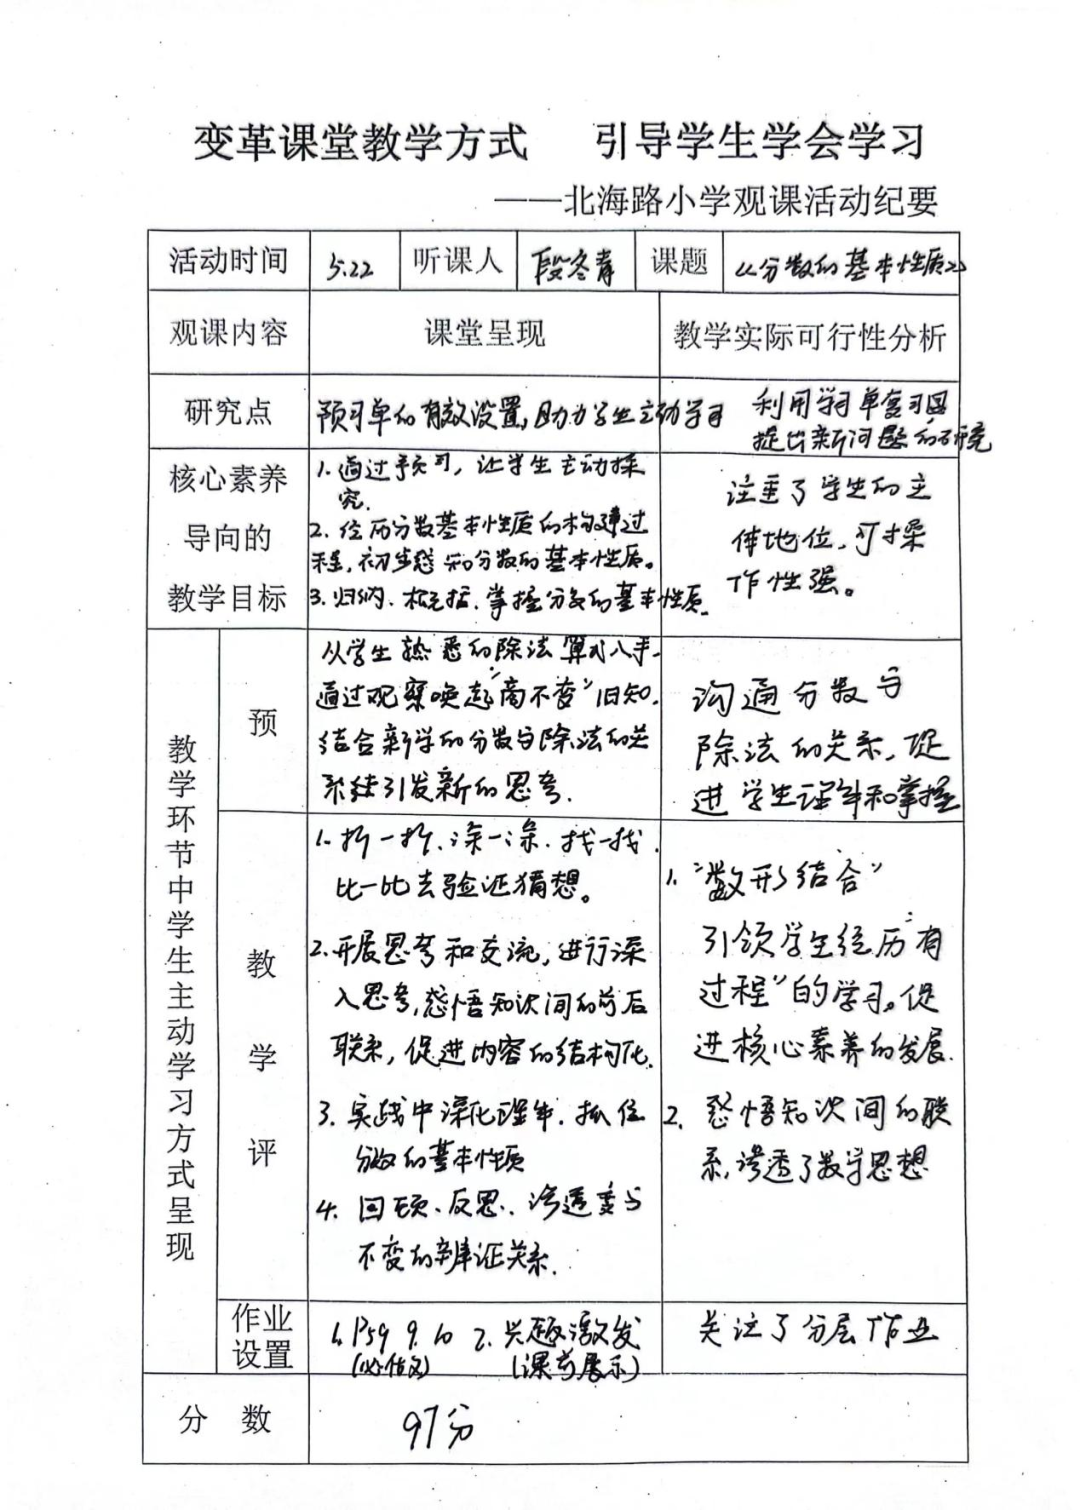 变革课堂教学方式 引导学生学会学习
——北海路小学观课活动纪要
活动时间 5.22 听课人 段冬青 课题 《分数的基本性质》
观课内容 课堂呈现 教学实际可行性分析
研究点 预习单的有效设置,助力学生主动学习
利用学习单复习旧
提出新问题的研究
核心素养
导向的
教学目标
1.通过预习,让学生主动探
究.
2.经历分数基本性质的构建过
程,初步感知分数的基本性质。
3.归纳、概括、掌握分数的基本性质.
注重了学生的主
体地位,可操
作性强。
教学环节中学生主动学习方式呈现
预
从学生熟悉的除法算式入手.
通过观察唤起"商不变"旧知.
结合新学的分数与除法的关
系继续引发新的思考.
沟通分数与
除法的关系,促
进学生理解和掌握
教
学
评
1.折一折、涂一涂、找一找、
比一比去验证猜想。
2.开展思考和交流,进行深
入思考,感悟知识间的前后
联系,促进内容的结构化.
3.实践中深化理解.抓住
分数的基本性质
4.回顾、反思、渗透变与
不变的辨证关系.
1."数形结合"
引领学生经历"有
过程"的学习。促
进核心素养的发展.
2.感悟知识间的联
系,渗透了数学思想
作业
设置
1.P59 9.10 2.兴趣激发
(课前展示)
关注了分层作业
分 数 97分